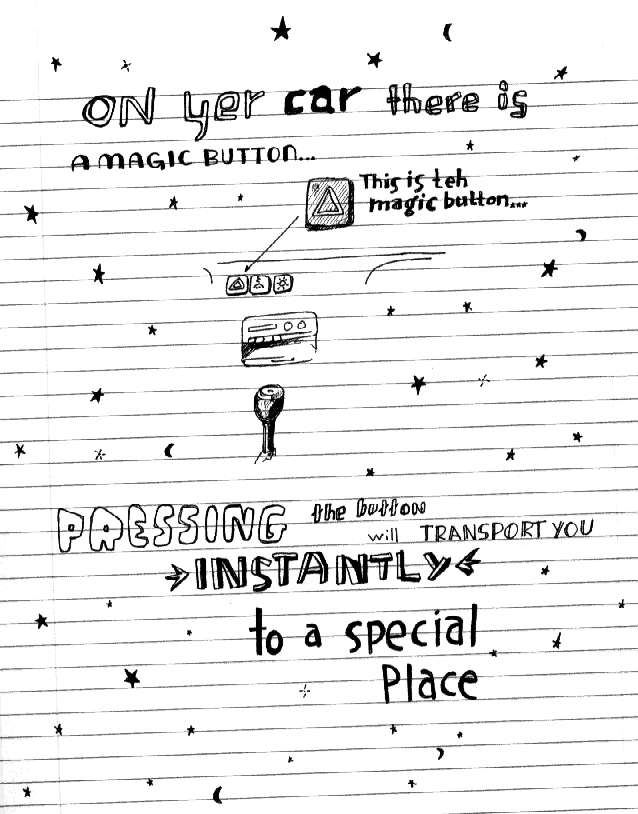 ON yer car there is
A MAGIC BUTTON...
This is teh
magic button...
PRESSING the button
will TRANSPORT YOU
INSTANTLY
to a special
Place